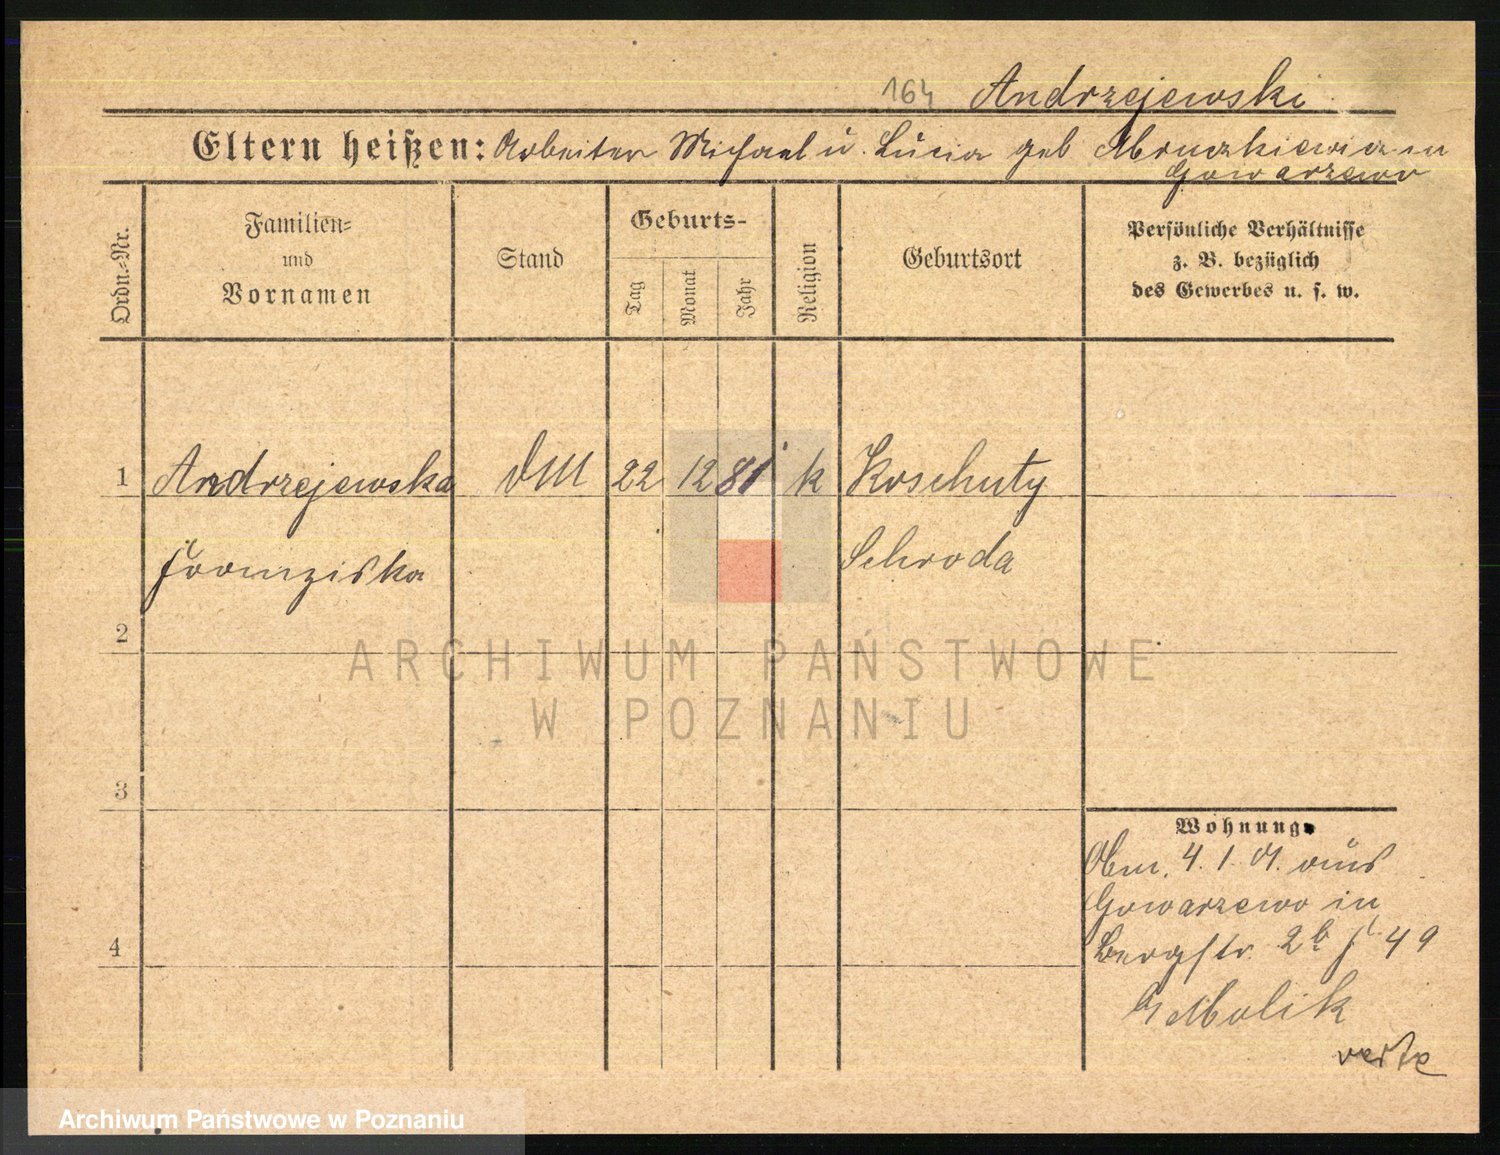 164 Andrzejewski
Eltern heißen: Arbeiter Michael u. Lucia geb
Gowarzewo
Ordn.-Nr.
Familien-
und
Vornamen
Stand
Geburts-
Tag
Monat
Jahr
Religion
Geburtsort
Persönliche Verhältnisse
z. B. bezüglich
des Gewerbes u. s. w.
1 Andrzejewska DM 22 12 81 k Koschuty
Franziska Schroda
2
ARCHIWUM PAŃSTWOWE
W POZNANIU
3
Wohnung.
4. 1. 01. aus
Gowarzewo in
Bergstr. 2b 49
4
Molik
verte
Archiwum Państwowe w Poznaniu